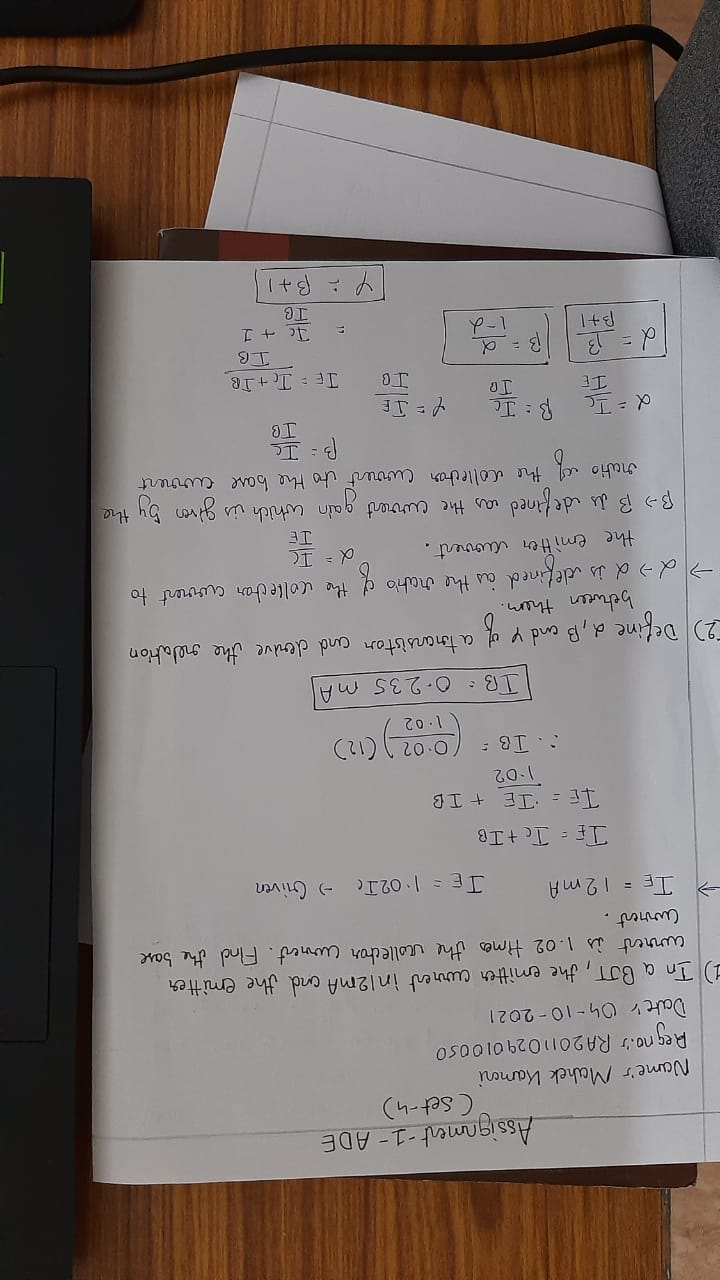 Assignment-1-ADE
(Set-4)
Name: Mahek Kamani
Reg no.: RA2011029010050
Date: 04-10-2021
1) In a BJT, the emitter current in 12mA and the emitter
current is 1.02 times the collector current. Find the base
current.
→ IE = 12mA IE = 1.02IC → Given
IE = IC + IB
IE = IE/1.02 + IB
∴ IB = (0.02/1.02)(12)
IB = 0.235 mA
(2) Define α, β and γ of a transistor and derive the relation
between them.
→ α → α is defined as the ratio of the collector current to
the emitter current. α = IC/IE
β → β is defined as the current gain which is given by the
ratio of the collector current to the base current
β = IC/IB
α = IC/IE β = IC/IB γ = IE/IB IE = IC + IB/IB
α = β/β+1 β = α/1-α = IC/IB + 1
γ = β+1